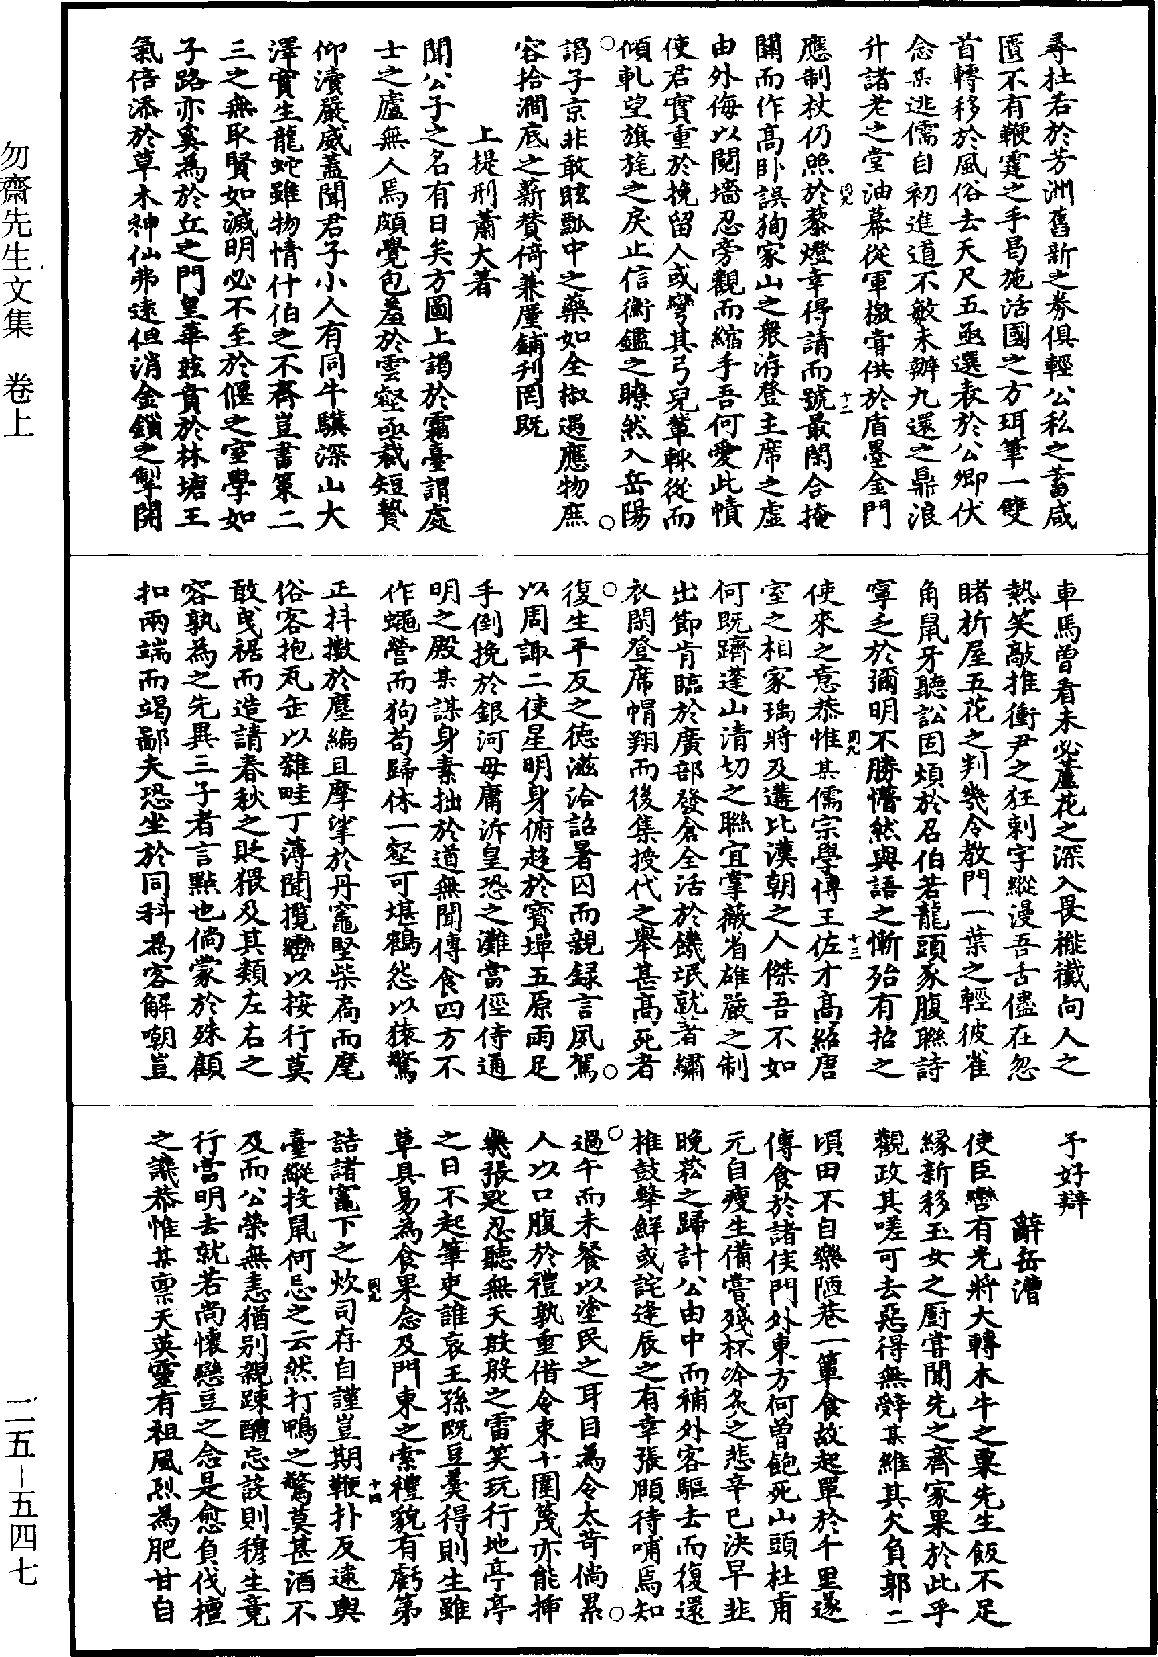 尋杜若於芳洲舊新之券俱輕公私之蓄咸
匱不有鞭霆之手曷施活國之方珥筆一雙
首轉移於風俗去天尺五亟選表於公卿伏
念某逃儒自初進道不敏未辦九還之鼎浪
升諸老之堂油幕從軍檄嘗供於盾墨金門
應制杖仍照於藜燈幸得請而號最閑合掩
關而作高卧誤狥家山之衆洊登主席之虛
由外侮以鬩墻忍旁觀而縮手吾何愛此幘
使君實重於挽留人或彎其弓兒輩輒從而
傾軋望旗旄之戾止信衡鑑之瞭然入岳陽
謁子京非敢眩瓢中之藥如全椒遇應物庶
容拾澗底之薪贊倚兼厪鋪刋罔既
上提刑蕭大著
聞公子之名有日矣方圖上謁於霜臺謂處
士之廬無人焉頗覺包羞於雲壑亟裁短贄
仰瀆嚴威蓋聞君子小人有同牛驥深山大
澤實生龍蛇雖物情什伯之不齊豈書策二
三之無取賢如滅明必不至於偃之室學如
子路亦奚為於丘之門皇華玆賁於林塘王
氣倍添於草木神仙弗遠但消金鎖之掣開
車馬曾看未必蘆花之深入畏襹襶向人之
熱笑敲推衝尹之狂刺字縱漫吾舌儘在忽
睹折屋五花之判幾令教門一葉之輕彼雀
角鼠牙聽訟固煩於召伯若龍頭豕腹聯詩
寧乏於彌明不勝懵然與語之慚殆有招之
使來之意恭惟某儒宗學博王佐才高紹唐
室之相家瑀將及遘比漢朝之人傑吾不如
何既躋蓬山清切之聯宜掌薇省雄嚴之制
出節肯臨於廣部發倉全活於饑氓就著繡
衣閑登席帽翔而後集授代之舉甚高死者
復生平反之德滋洽詔署囚而親録言夙駕
以周諏二使星明身俯趍於寳墠五原雨足
手倒挽於銀河毋庸泝皇恐之灘當俓侍通
明之殿某謀身素拙於道無聞傳食四方不
作蠅營而狗苟歸休一壑可堪鶴怨以猿驚
正抖擻於塵編且摩挲於丹竈堅柴扄而麾
俗客抱瓦缶以雜畦丁薄聞攬轡以按行莫
敢曳裾而造請春秋之貶猥及其類左右之
容孰為之先異三子者言㸃也倘蒙於殊顧
扣兩端而竭鄙夫恐坐於同科為客解嘲豈
予好辯
辭岳漕
使臣轡有光將大轉木牛之粟先生飯不足
緣新移玉女之厨嘗聞先之齊家果於此乎
觀政其嗟可去惡得無辭某維其欠負郭二
頃田不自樂陋巷一簞食故起單於千里遂
傳食於諸侯門外東方何曾飽死山頭杜甫
元自瘦生備嘗殘杯冷炙之悲辛已決早韭
晚菘之歸計公由中而補外客驅去而復還
椎鼓擊鮮或詫逢辰之有幸張頤待哺焉知
過午而未餐以塗民之耳目為令太苛倘累
人以口腹於禮孰重借令束十圍篾亦能挿
幾張匙忍聽無天鼓殷之雷笑玩行地亭亭
之日不起筆吏誰哀王孫既豆羮得則生雖
草具易為食果念及門東之索禮貌有虧第
詰諸竈下之炊司存自謹豈期鞭扑反逮輿
臺縱投鼠何忌之云然打鴨之驚莫甚酒不
及而公榮無恚猶别親踈醴忘設則穆生竟
行當明去就若尚懷戀豆之念是愈負伐檀
之譏恭惟某禀天英靈有祖風烈為肥甘自
勿齋先生文集　卷上
二五－五四七